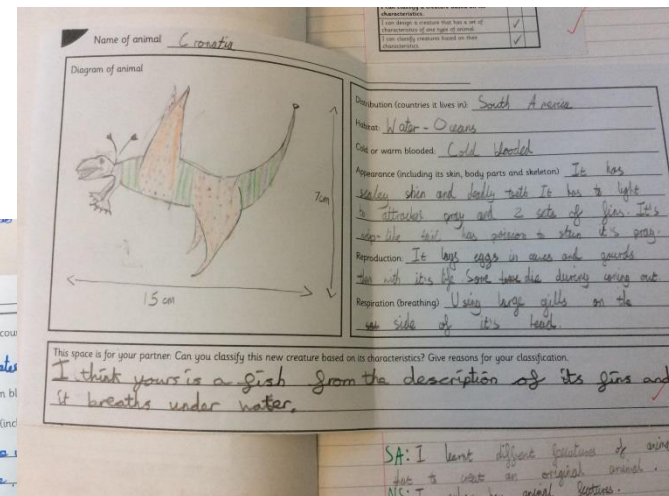 characteristics.
I can design a creature that has a set of
characteristics of one type of animal
I can classify creatures based on their
characteristics
Name of animal Cronatia
Diagram of animal
7cm
15 cm
Distribution (countries it lives in): South America
Habitat: Water - Oceans
Cold or warm blooded: Cold blooded
Appearance (including its skin, body parts and skeleton) It has
scaley skin and deadly teeth It has to light
to attrackt pray and 2 sets of fins. It's
whip-like tail has poison to stun it's pray.
Reproduction: It lays eggs in caves and gaurds
them with it's life Some die during coming out.
Respiration (breathing) Using large gills on the
side of it's head.
This space is for your partner. Can you classify this new creature based on its characteristics? Give reasons for your classification.
I think yours is a fish from the description of its fins and
it breaths under water.
SA: I learnt diffrent features of
to creat an original animal.
NS: I animal features.